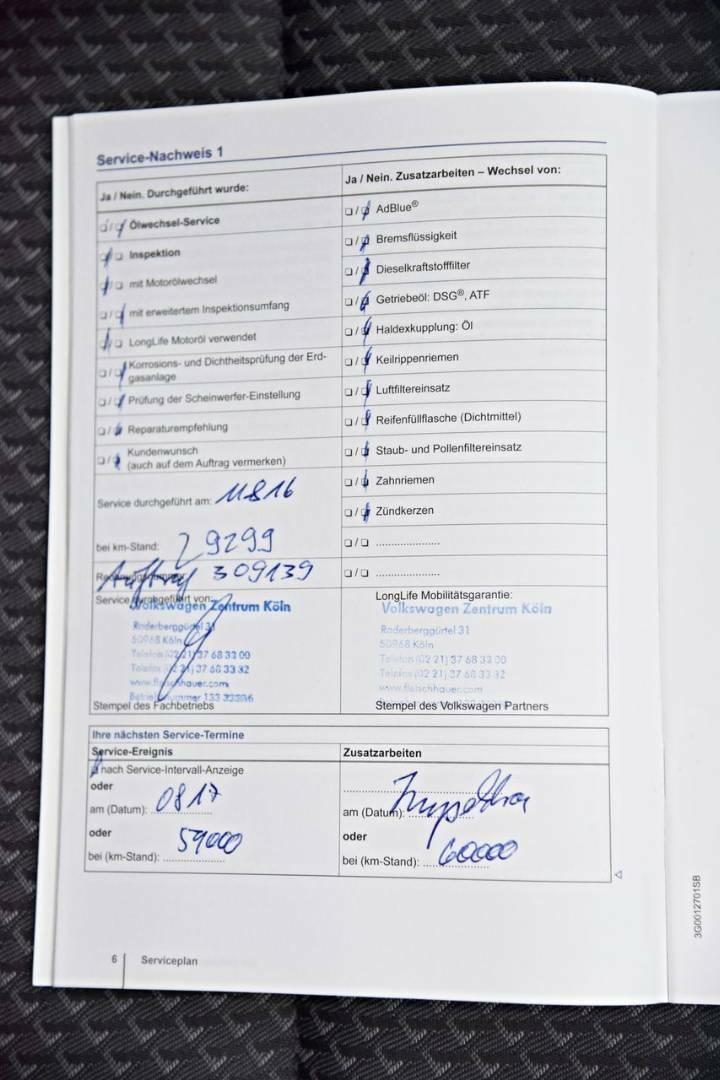 Service-Nachweis 1
Ja / Nein. Durchgeführt wurde:
Ölwechsel-Service
Inspektion
mit Motorölwechsel
mit erweitertem Inspektionsumfang
LongLife Motoröl verwendet
Korrosions- und Dichtheitsprüfung der Erd-
gasanlage
Prüfung der Scheinwerfer-Einstellung
Reparaturempfehlung
Kundenwunsch
(auch auf dem Auftrag vermerken)
Service durchgeführt am: 11.8.16
bei km-Stand: 29299
Auftrag 309139
Service durchgeführt von:
Volkswagen Zentrum Köln
Raderberggürtel 31
50968 Köln
Telefon (02 21) 37 68 33 00
Telefax (02 21) 37 68 33 32
www.fleischhauer.com
Betriebsnummer 133
Stempel des Fachbetriebs
Ja / Nein. Zusatzarbeiten – Wechsel von:
AdBlue®
Bremsflüssigkeit
Dieselkraftstofffilter
Getriebeöl: DSG®, ATF
Haldexkupplung: Öl
Keilrippenriemen
Luftfiltereinsatz
Reifenfüllflasche (Dichtmittel)
Staub- und Pollenfiltereinsatz
Zahnriemen
Zündkerzen
LongLife Mobilitätsgarantie:
Volkswagen Zentrum Köln
Raderberggürtel 31
50968 Köln
Telefon (02 21) 37 68 33 00
Telefax (02 21) 37 68 33 32
www.fleischhauer.com
Stempel des Volkswagen Partners
Ihre nächsten Service-Termine
Service-Ereignis
nach Service-Intervall-Anzeige
oder
am (Datum): 08 17
oder
bei (km-Stand): 59000
Zusatzarbeiten
Inspektion
am (Datum):
oder
bei (km-Stand): 60000
6 Serviceplan
3G0012701SB